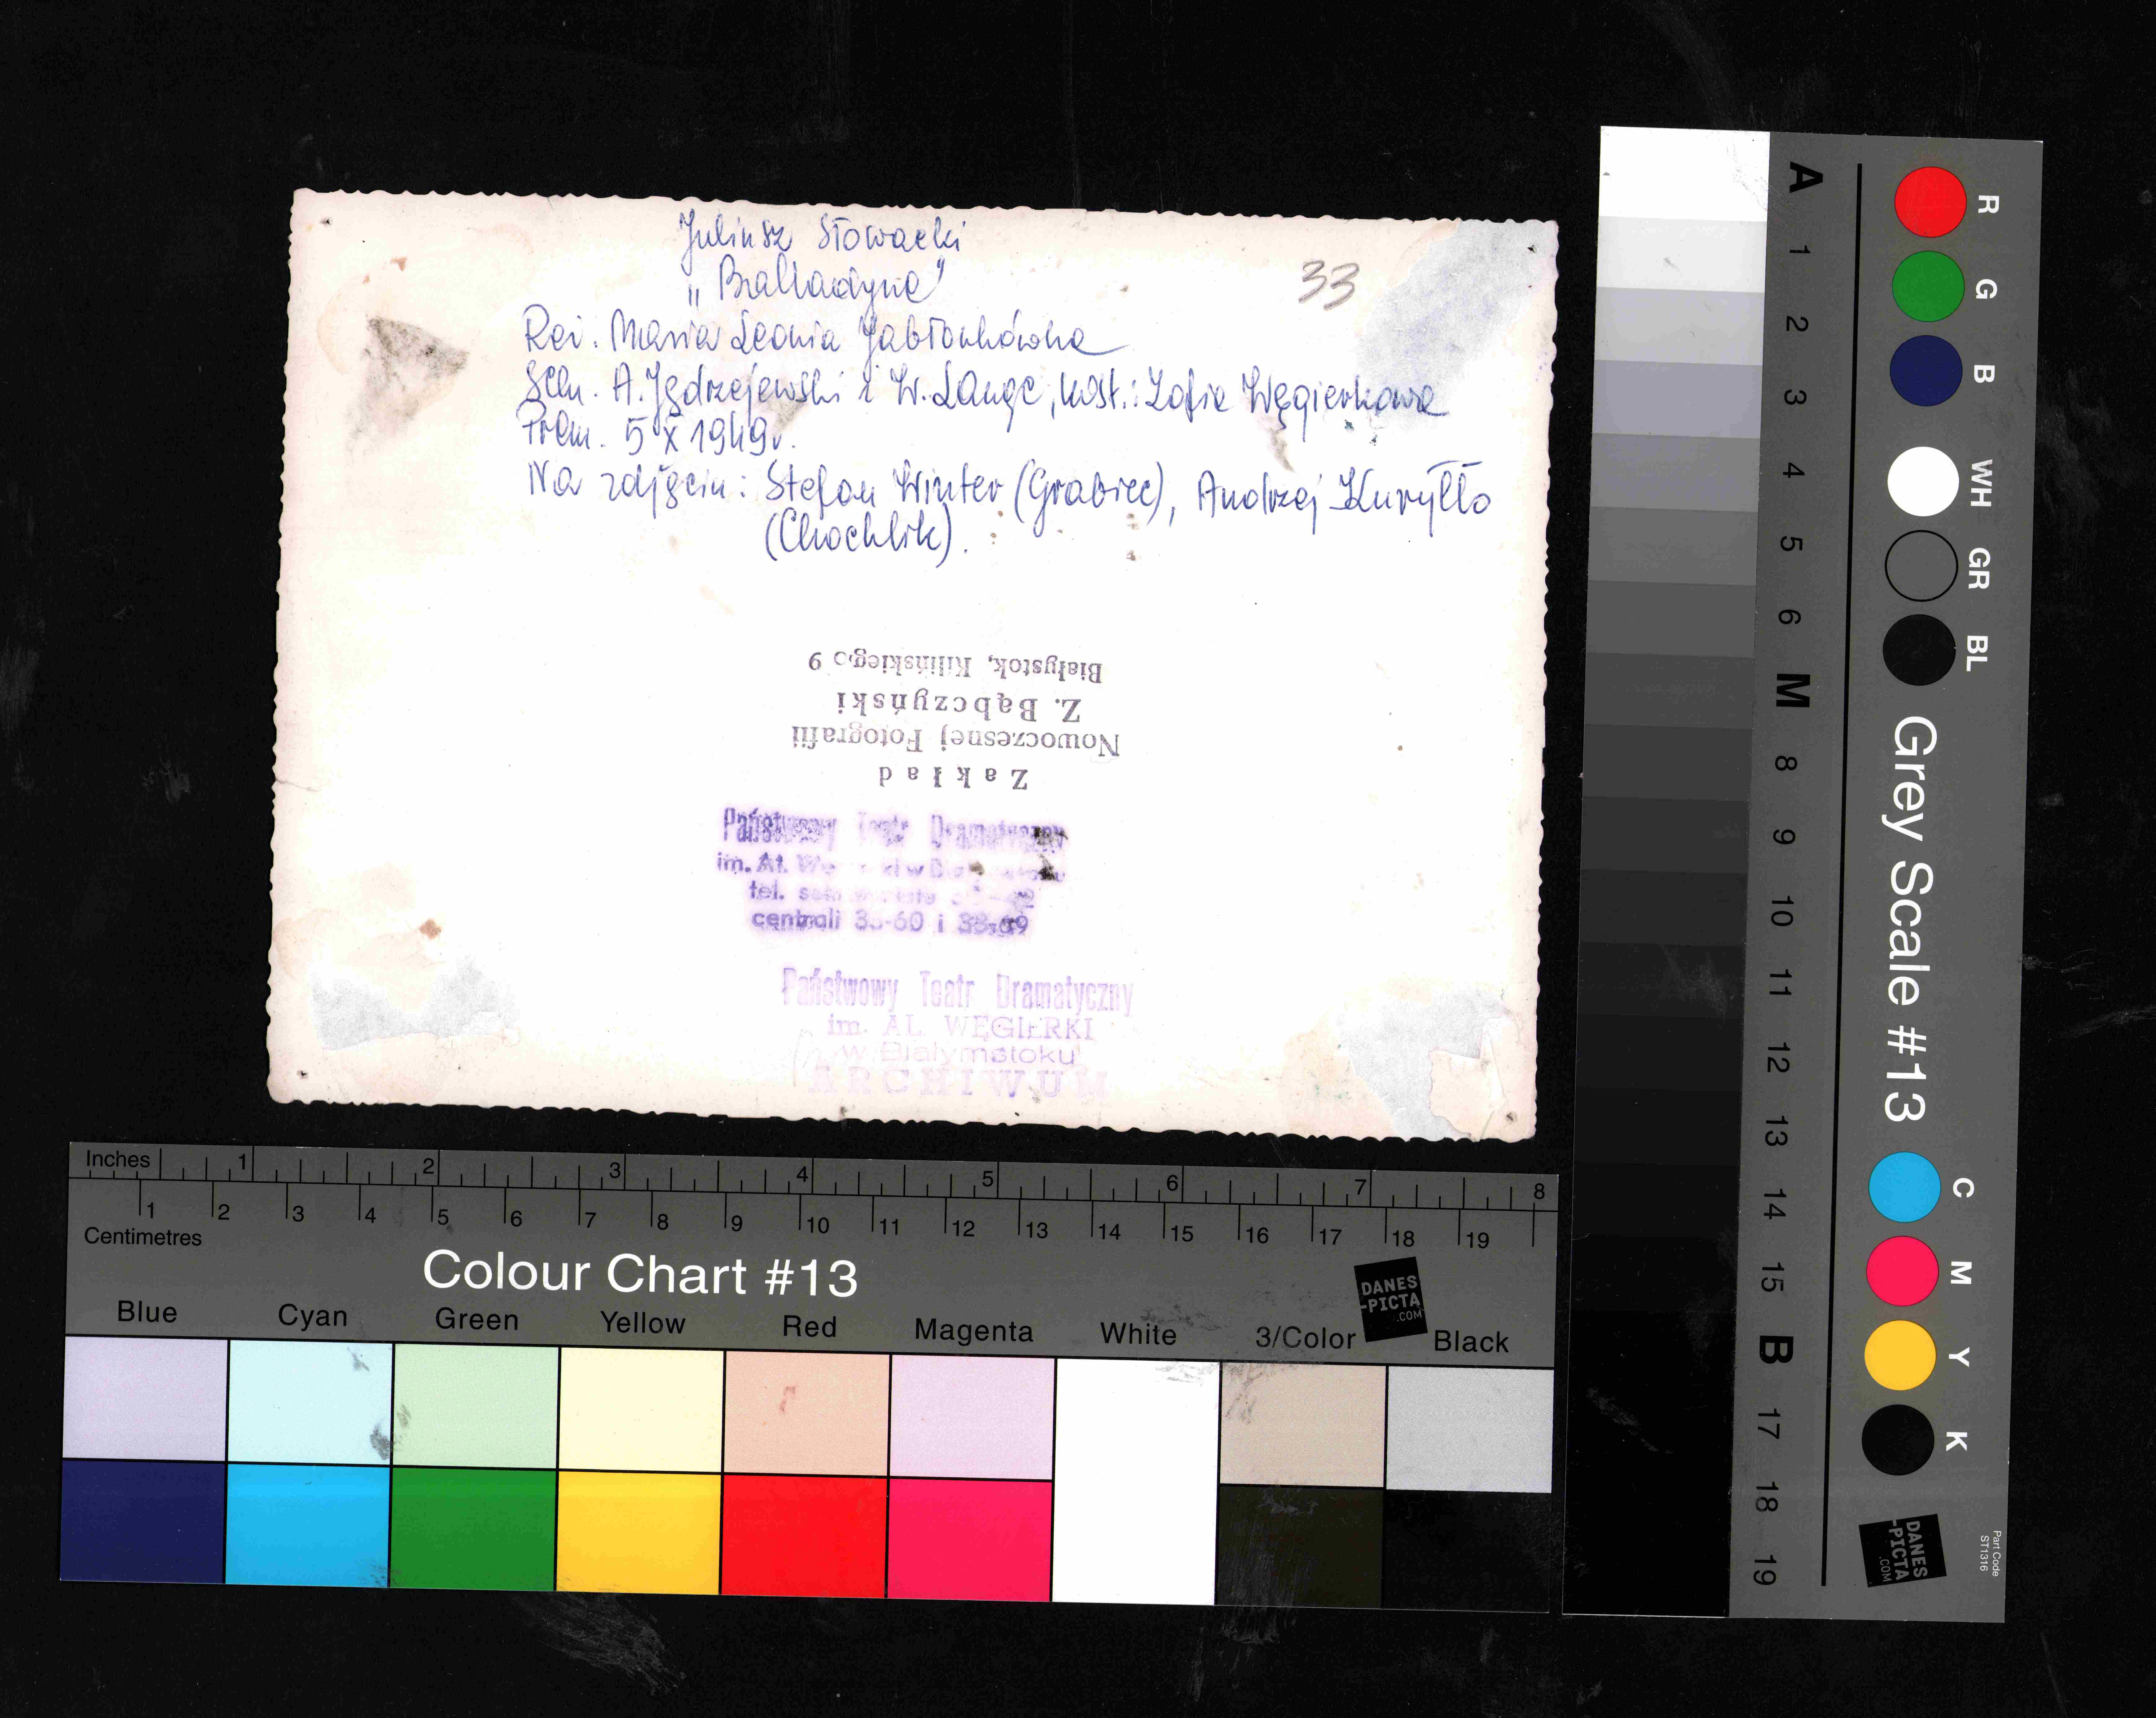 Juliusz Słowacki
„Balladyna"
33
Reż. Maria Leonia Jabłonkówna
Scen. A. Jędrzejewski i W. Lange, kost.: Zofia Węgierkowa
Prem. 5 X 1949r.
Na zdjęciu: Stefan Winter (Grabiec), Andrzej Kuryłło
(Chochlik).
Zakład
Nowoczesnej Fotografii
Z. Bąbczyński
Białystok, Kilińskiego 9
Państwowy Teatr Dramatyczny
im. Al.
tel.
centrali
Państwowy Teatr Dramatyczny
im. AL. WĘGIERKI
w Białymstoku
ARCHIWUM
Inches 1 2 3 4 5 6 7 8
1 2 3 4 5 6 7 8 9 10 11 12 13 14 15 16 17 18 19
Centimetres
Colour Chart #13
DANES
-PICTA
.COM
Blue Cyan Green Yellow Red Magenta White 3/Color Black
R G B WH GR BL Grey Scale #13 C M Y K
A 1 2 3 4 5 6 M 8 9 10 11 12 13 14 15 B 17 18 19
DANES
-PICTA
.COM
Part Code
ST1316